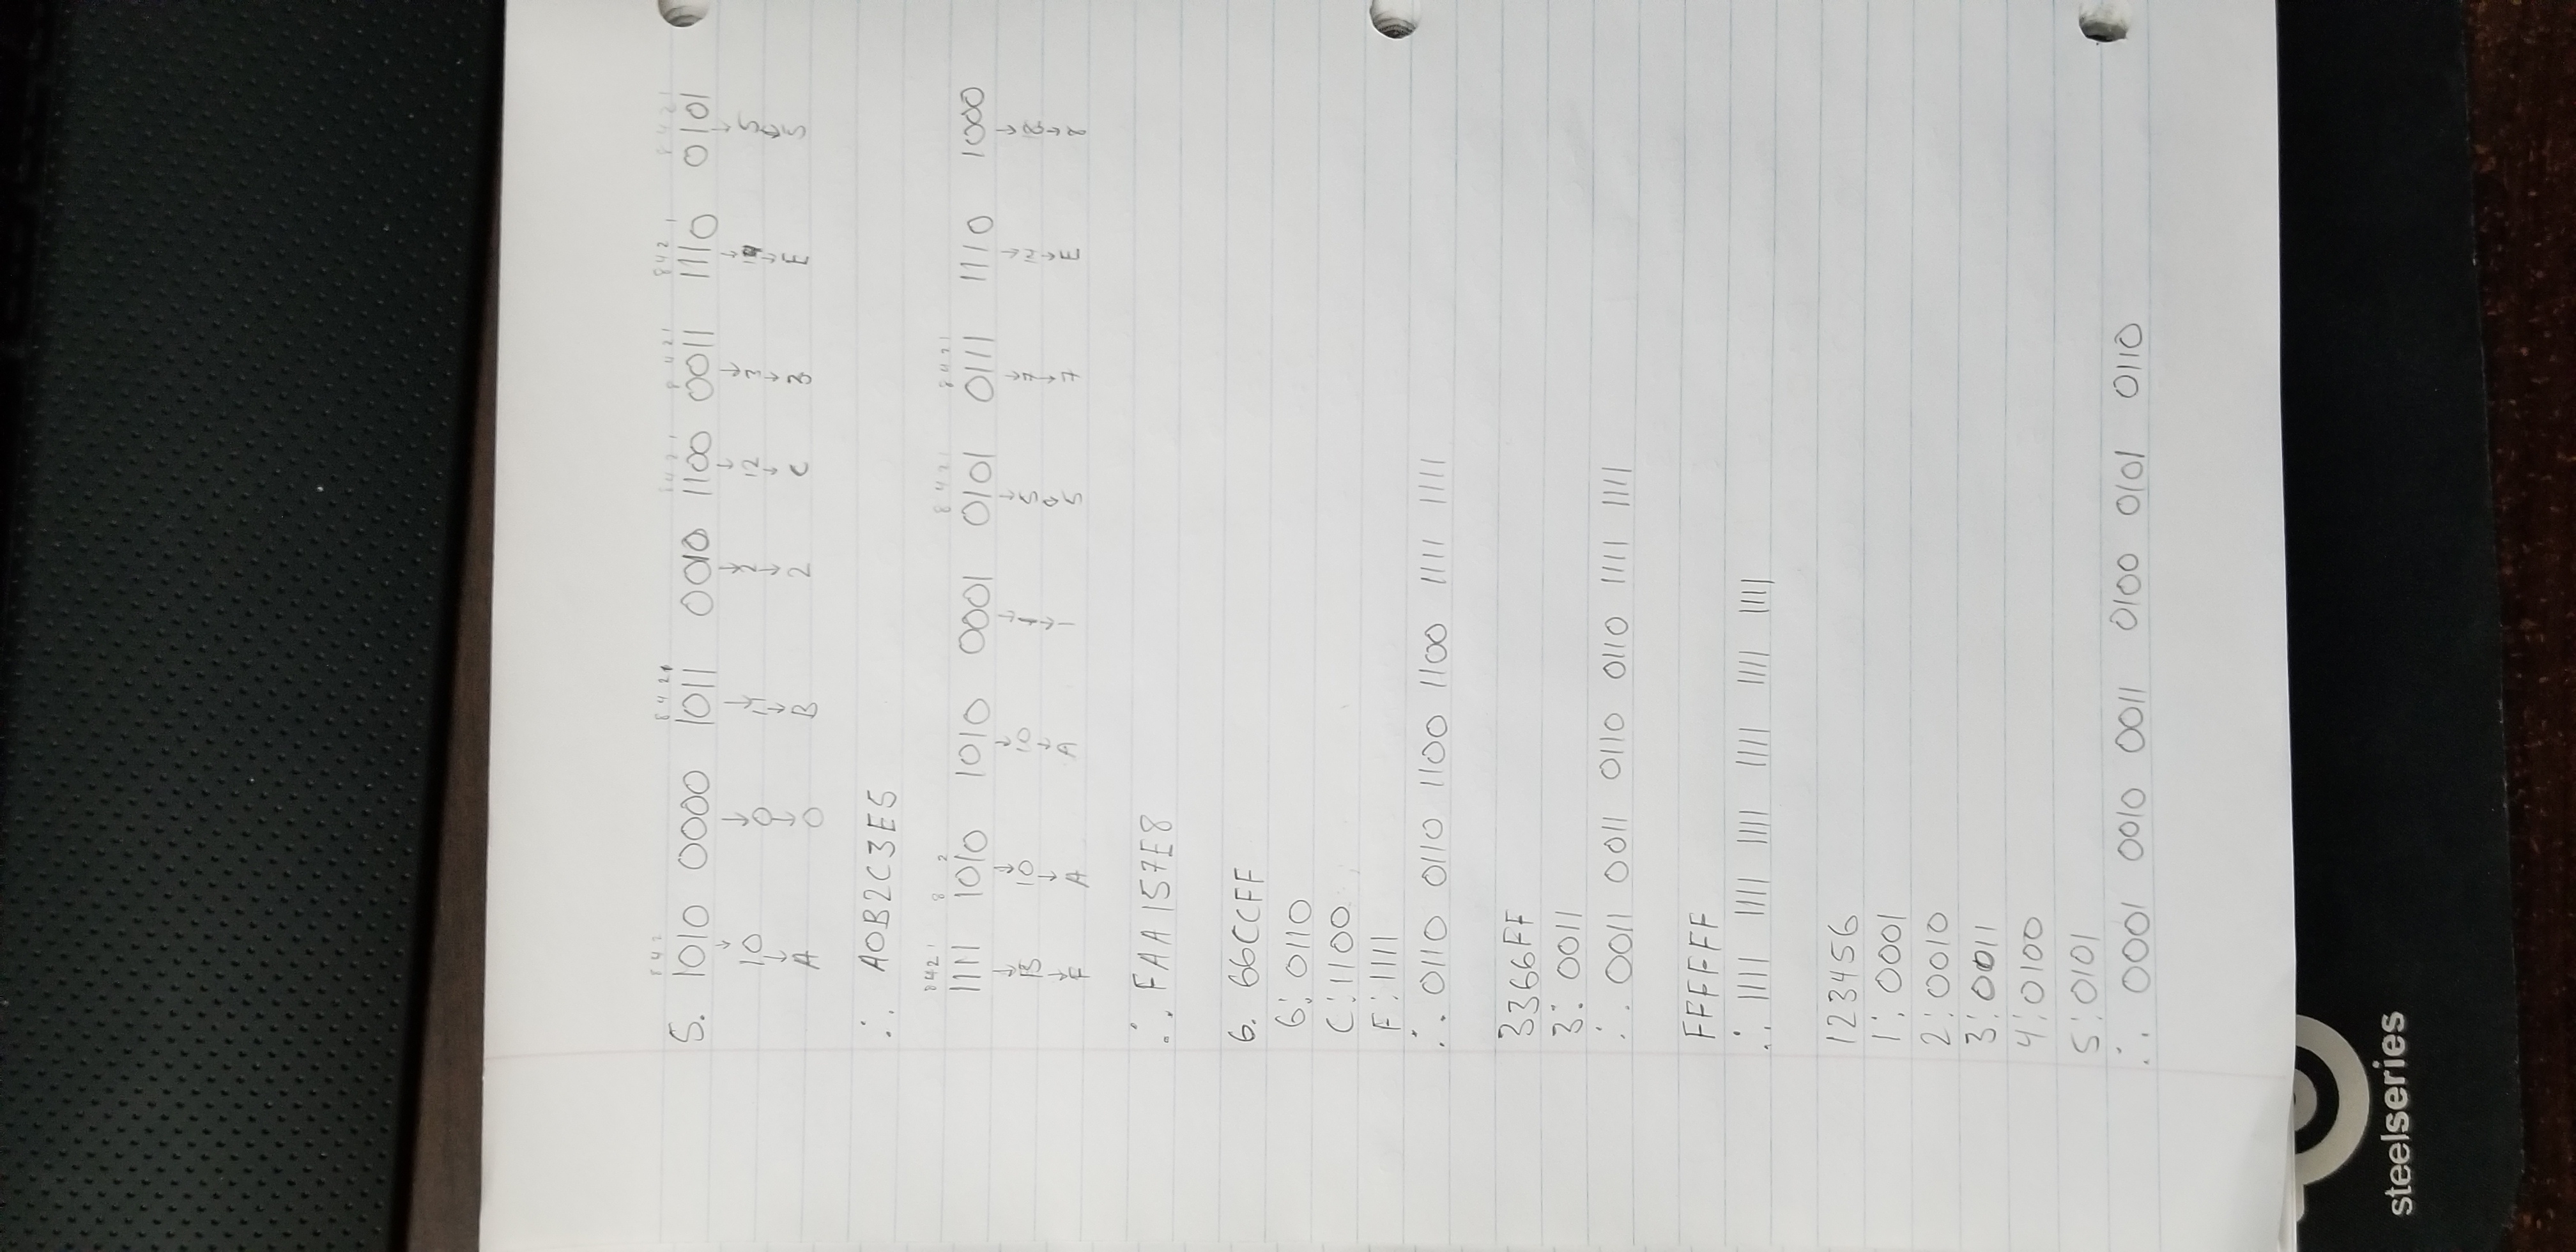 8 4 2 8 4 2 1 8 4 2 1 8 4 2 1 8 4 2 1 8 4 2 1
5. 1010 0000 1011 0010 1100 0011 1110 0101
↓ ↓ ↓ ↓ ↓ ↓ ↓ ↓
10 0 11 2 12 3 5
↓ ↓ ↓ ↓ ↓ ↓ ↓ ↓
A 0 B 2 C 3 E 5
∴ A0B2C3E5
8 4 2 1 8 2 8 4 2 1 8 4 2 1
1111 1010 1010 0001 0101 0111 1110 1000
↓ ↓ ↓ ↓ ↓ ↓ ↓ ↓
15 10 10 1 5 7 8
↓ ↓ ↓ ↓ ↓ ↓ ↓ ↓
F A A 1 5 7 E 8
∴ FAA157E8
6. 66CCFF
6: 0110
C: 1100
F: 1111
∴ 0110 0110 1100 1100 1111 1111
3366FF
3: 0011
∴ 0011 0011 0110 0110 1111 1111
FFFFFF
∴ 1111 1111 1111 1111 1111 1111
123456
1: 0001
2: 0010
3: 0011
4: 0100
5: 0101
∴ 0001 0010 0011 0100 0101 0110
steelseries